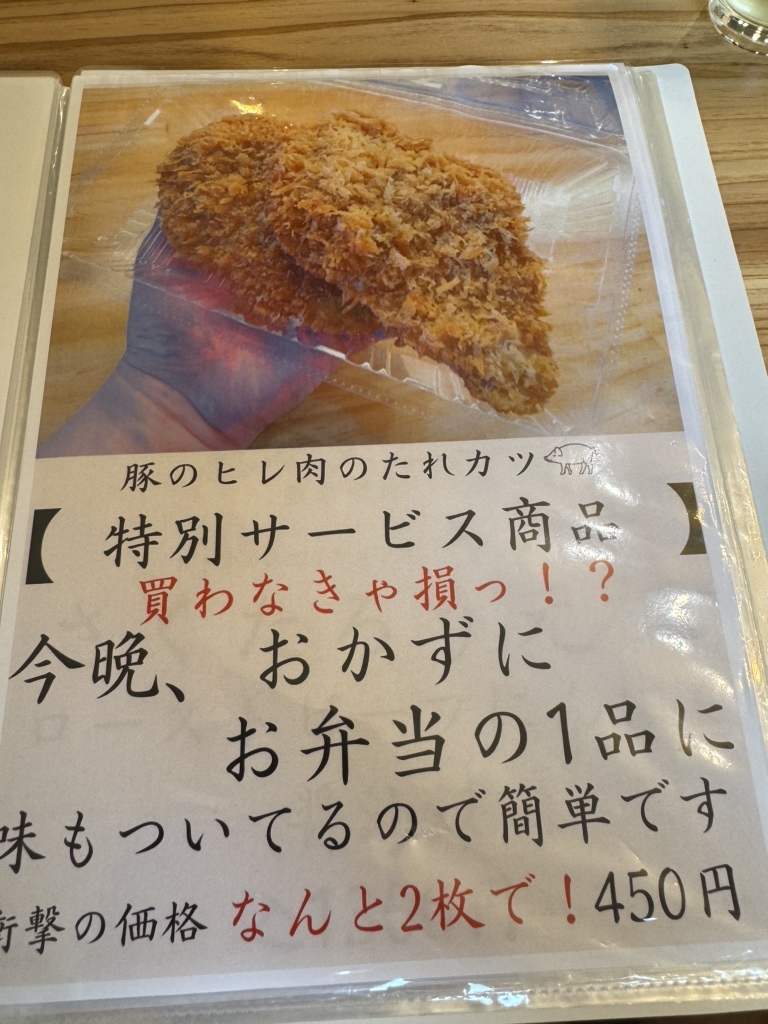 豚のヒレ肉のたれカツ
【特別サービス商品】
買わなきゃ損っ！？
今晩、おかずに
お弁当の1品に
味もついてるので簡単です
衝撃の価格 なんと2枚で！450円